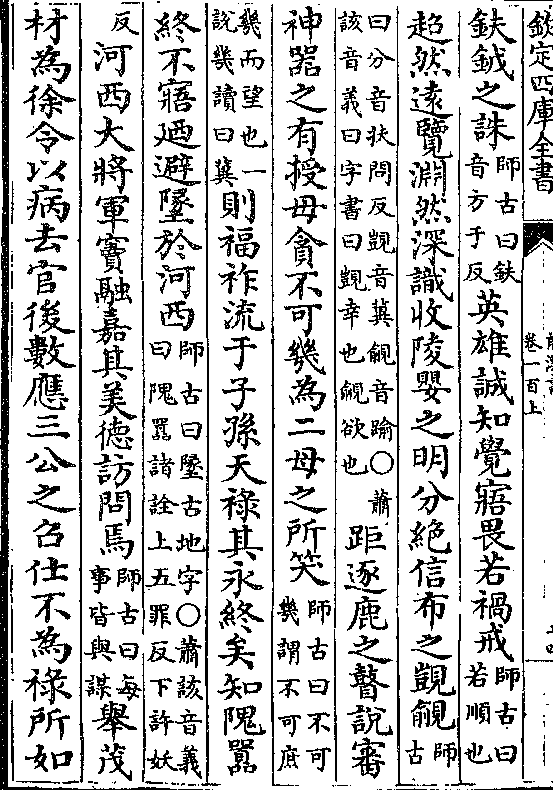 欽定四庫全書
卷一百上
鈇鉞之誅師古曰鈇音方于反英雄誠知覺寤畏若禍戒師古曰若順也
超然遠覽淵然深識收陵嬰之明分絶信布之覬覦師古
曰分音扶問反覬音冀覦音踰○蕭該音義曰字書曰覬幸也覦欲也距逐鹿之瞽說審
神器之有授毋貪不可幾為二母之所笑師古曰不可幾謂不可庶
幾而望也一說幾讀曰冀則福祚流于子孫天祿其永終矣知隗囂
終不寤廼避墬於河西師古曰墬古地字○蕭該音義曰隗囂諸詮上五罪反下許妖
反河西大將軍竇融嘉其美德訪問焉師古曰每事皆與謀舉茂
材為徐令以病去官後數應三公之召仕不為祿所如